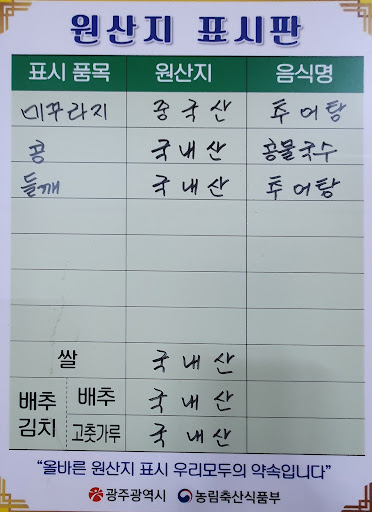 원산지 표시판
표시 품목 원산지 음식명
미꾸라지 중국산 추어탕
콩 국내산 콩물국수
들깨 국내산 추어탕
쌀 국내산
배추김치 배추 국내산
고춧가루 국내산
“올바른 원산지 표시 우리모두의 약속입니다”
광주광역시 농림축산식품부